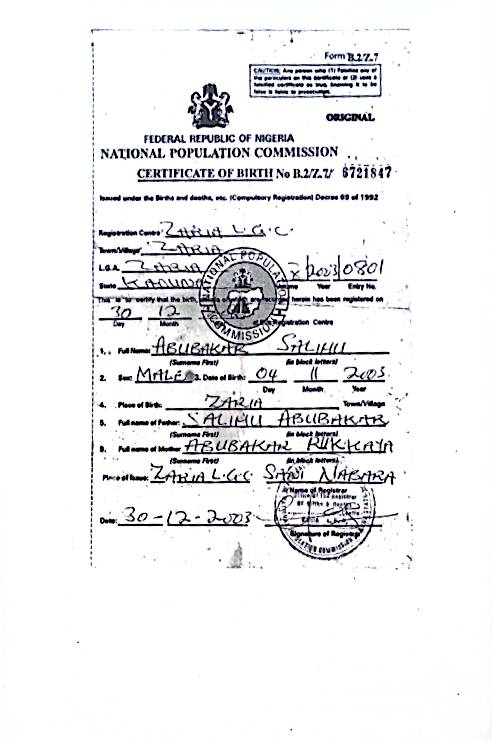 Form B.2/Z.7
CAUTION: Any person who (1) Falsifies any of
the particulars on this certificate or (2) uses a
falsified certificate as true, knowing it to be
false is liable to prosecution.
ORIGINAL
FEDERAL REPUBLIC OF NIGERIA
NATIONAL POPULATION COMMISSION
CERTIFICATE OF BIRTH No B.2/Z.7/ 6721847
Issued under the Births and deaths, etc. (Compulsory Registration) Decree 69 of 1992
Registration Centre ZARIA L.G.C.
Town/Village ZARIA
L.G.A. ZARIA 2023 0801
State KADUNA Volume Year Entry No.
NATIONAL POPULATION COMMISSION
This is to certify that the birth, herein has been registered on
30 12
Day Month Registration Centre
1. Full Name: ABUBAKAR SALIHU
(Surname First) (in block letters)
2. Sex: MALE 3. Date of Birth: 04 11 2003
Day Month Year
4. Place of Birth: ZARIA Town/Village
5. Full name of Father: SALIHU ABUBAKAR
(Surname First) (in block letters)
6. Full name of Mother ABUBAKAR RUKKAYA
(Surname First) (in block letters)
Place of Issue: ZARIA L.G.C SANI NABARA
Name of Registrar
Date: 30-12-2003
Signature of Registrar